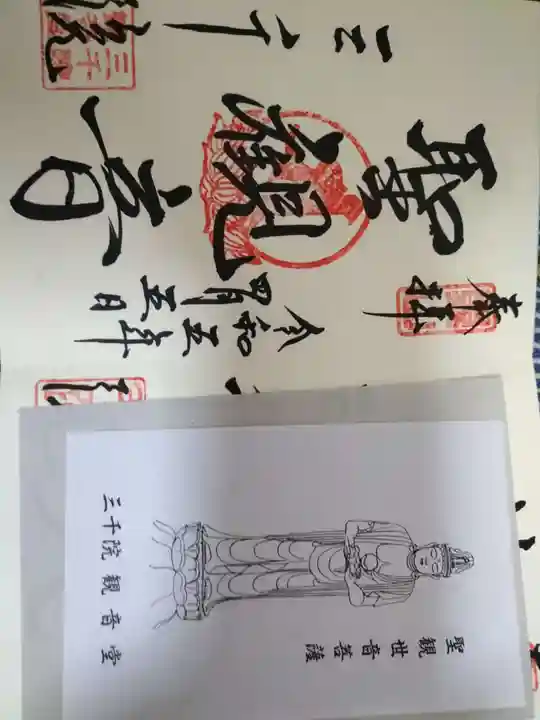 奉拝
令和五年
四月五日
聖観音
三千院
三千院
聖観世音菩薩
三千院 観音堂